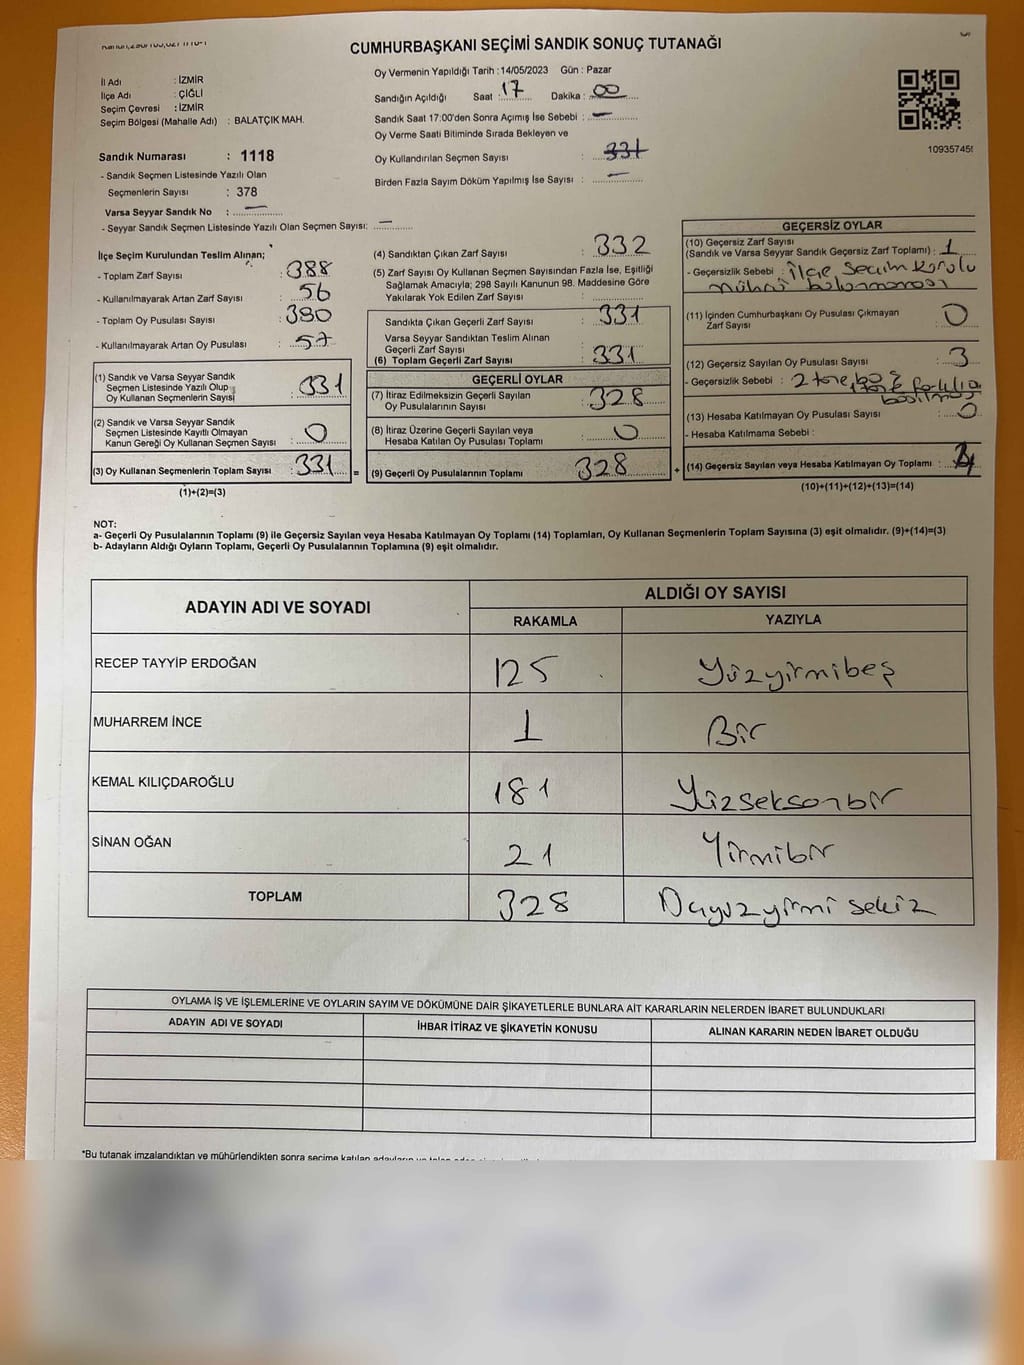 CUMHURBAŞKANI SEÇİMİ SANDIK SONUÇ TUTANAĞI
İl Adı : İZMİR
İlçe Adı : ÇİĞLİ
Seçim Çevresi : İZMİR
Seçim Bölgesi (Mahalle Adı) : BALATÇIK MAH.
Sandık Numarası : 1118
- Sandık Seçmen Listesinde Yazılı Olan
Seçmenlerin Sayısı : 378
Varsa Seyyar Sandık No : —
- Seyyar Sandık Seçmen Listesinde Yazılı Olan Seçmen Sayısı: —
Oy Vermenin Yapıldığı Tarih : 14/05/2023 Gün : Pazar
Sandığın Açıldığı Saat : 17 Dakika : 00
Sandık Saat 17:00'den Sonra Açımış İse Sebebi : —
Oy Verme Saati Bitiminde Sırada Bekleyen ve
Oy Kullandırılan Seçmen Sayısı : 331
Birden Fazla Sayım Döküm Yapılmış İse Sayısı : —
109357459
İlçe Seçim Kurulundan Teslim Alınan;
- Toplam Zarf Sayısı : 388
- Kullanılmayarak Artan Zarf Sayısı : 56
- Toplam Oy Pusulası Sayısı : 380
- Kullanılmayarak Artan Oy Pusulası : 57
(1) Sandık ve Varsa Seyyar Sandık
Seçmen Listesinde Yazılı Olup
Oy Kullanan Seçmenlerin Sayısı : 331
(2) Sandık ve Varsa Seyyar Sandık
Seçmen Listesinde Kayıtlı Olmayan
Kanun Gereği Oy Kullanan Seçmen Sayısı : 0
(3) Oy Kullanan Seçmenlerin Toplam Sayısı : 331 =
(1)+(2)=(3)
(4) Sandıktan Çıkan Zarf Sayısı : 332
(5) Zarf Sayısı Oy Kullanan Seçmen Sayısından Fazla İse, Eşitliği
Sağlamak Amacıyla; 298 Sayılı Kanunun 98. Maddesine Göre
Yakılarak Yok Edilen Zarf Sayısı :
Sandıkta Çıkan Geçerli Zarf Sayısı : 331
Varsa Seyyar Sandıktan Teslim Alınan
Geçerli Zarf Sayısı :
(6) Toplam Geçerli Zarf Sayısı : 331
GEÇERLİ OYLAR
(7) İtiraz Edilmeksizin Geçerli Sayılan
Oy Pusulalarının Sayısı : 328
(8) İtiraz Üzerine Geçerli Sayılan veya
Hesaba Katılan Oy Pusulası Toplamı : 0
(9) Geçerli Oy Pusulalarının Toplamı : 328 +
GEÇERSİZ OYLAR
(10) Geçersiz Zarf Sayısı
(Sandık ve Varsa Seyyar Sandık Geçersiz Zarf Toplamı) : 1
- Geçersizlik Sebebi : İlçe Seçim Kurulu
mührü bulunmaması
(11) İçinden Cumhurbaşkanı Oy Pusulası Çıkmayan
Zarf Sayısı : 0
(12) Geçersiz Sayılan Oy Pusulası Sayısı : 3
- Geçersizlik Sebebi : 2 tane
(13) Hesaba Katılmayan Oy Pusulası Sayısı : 0
- Hesaba Katılmama Sebebi :
(14) Geçersiz Sayılan veya Hesaba Katılmayan Oy Toplamı :
(10)+(11)+(12)+(13)=(14)
NOT:
a- Geçerli Oy Pusulalarının Toplamı (9) ile Geçersiz Sayılan veya Hesaba Katılmayan Oy Toplamı (14) Toplamları, Oy Kullanan Seçmenlerin Toplam Sayısına (3) eşit olmalıdır. (9)+(14)=(3)
b- Adayların Aldığı Oyların Toplamı, Geçerli Oy Pusulalarının Toplamına (9) eşit olmalıdır.
ADAYIN ADI VE SOYADI ALDIĞI OY SAYISI
RAKAMLA YAZIYLA
RECEP TAYYİP ERDOĞAN 125 Yüzyirmibeş
MUHARREM İNCE 1 Bir
KEMAL KILIÇDAROĞLU 181 Yüzseksenbir
SİNAN OĞAN 21 Yirmibir
TOPLAM 328 Üçyüzyirmi sekiz
OYLAMA İŞ VE İŞLEMLERİNE VE OYLARIN SAYIM VE DÖKÜMÜNE DAİR ŞİKAYETLERLE BUNLARA AİT KARARLARIN NELERDEN İBARET BULUNDUKLARI
ADAYIN ADI VE SOYADI İHBAR İTİRAZ VE ŞİKAYETİN KONUSU ALINAN KARARIN NEDEN İBARET OLDUĞU
*Bu tutanak imzalandıktan ve mühürlendikten sonra seçime katılan adayların